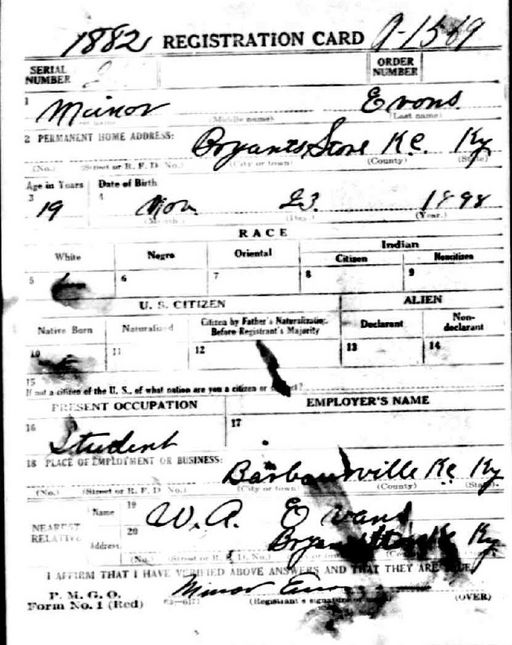 1882 REGISTRATION CARD A-1569
SERIAL NUMBER 2 ORDER NUMBER
1 Minor Evons
(Middle name) (Last name)
2 PERMANENT HOME ADDRESS:
Bryants Store Ky
(No.) (Street or R. F. D. No.) (City or town) (County) (State)
Age in Years Date of Birth
3 4
19 Nov 23 1898
(Month.) (Day.) (Year.)
RACE
White Negro Oriental Indian
Citizen Noncitizen
5 6 7 8 9
U. S. CITIZEN ALIEN
Native Born Naturalized Citizen by Father's Naturalization Before Registrant's Majority Declarant Non-declarant
10 11 12 13 14
15
If not a citizen of the U. S., of what nation are you a citizen or subject?
PRESENT OCCUPATION EMPLOYER'S NAME
16 17
Student
18 PLACE OF EMPLOYMENT OR BUSINESS:
Barbourville Ky
(No.) (Street or R. F. D. No.) (City or town) (County) (State)
NEAREST RELATIVE
Name 19 W. A. Evans
Address 20 Ky
(No.) (Street or R. F. D. No.) (City or town) (County)
I AFFIRM THAT I HAVE VERIFIED ABOVE ANSWERS AND THAT THEY ARE TRUE
P. M. G. O.
Form No. 1 (Red) Minor
(Registrant's signature or mark) (OVER)